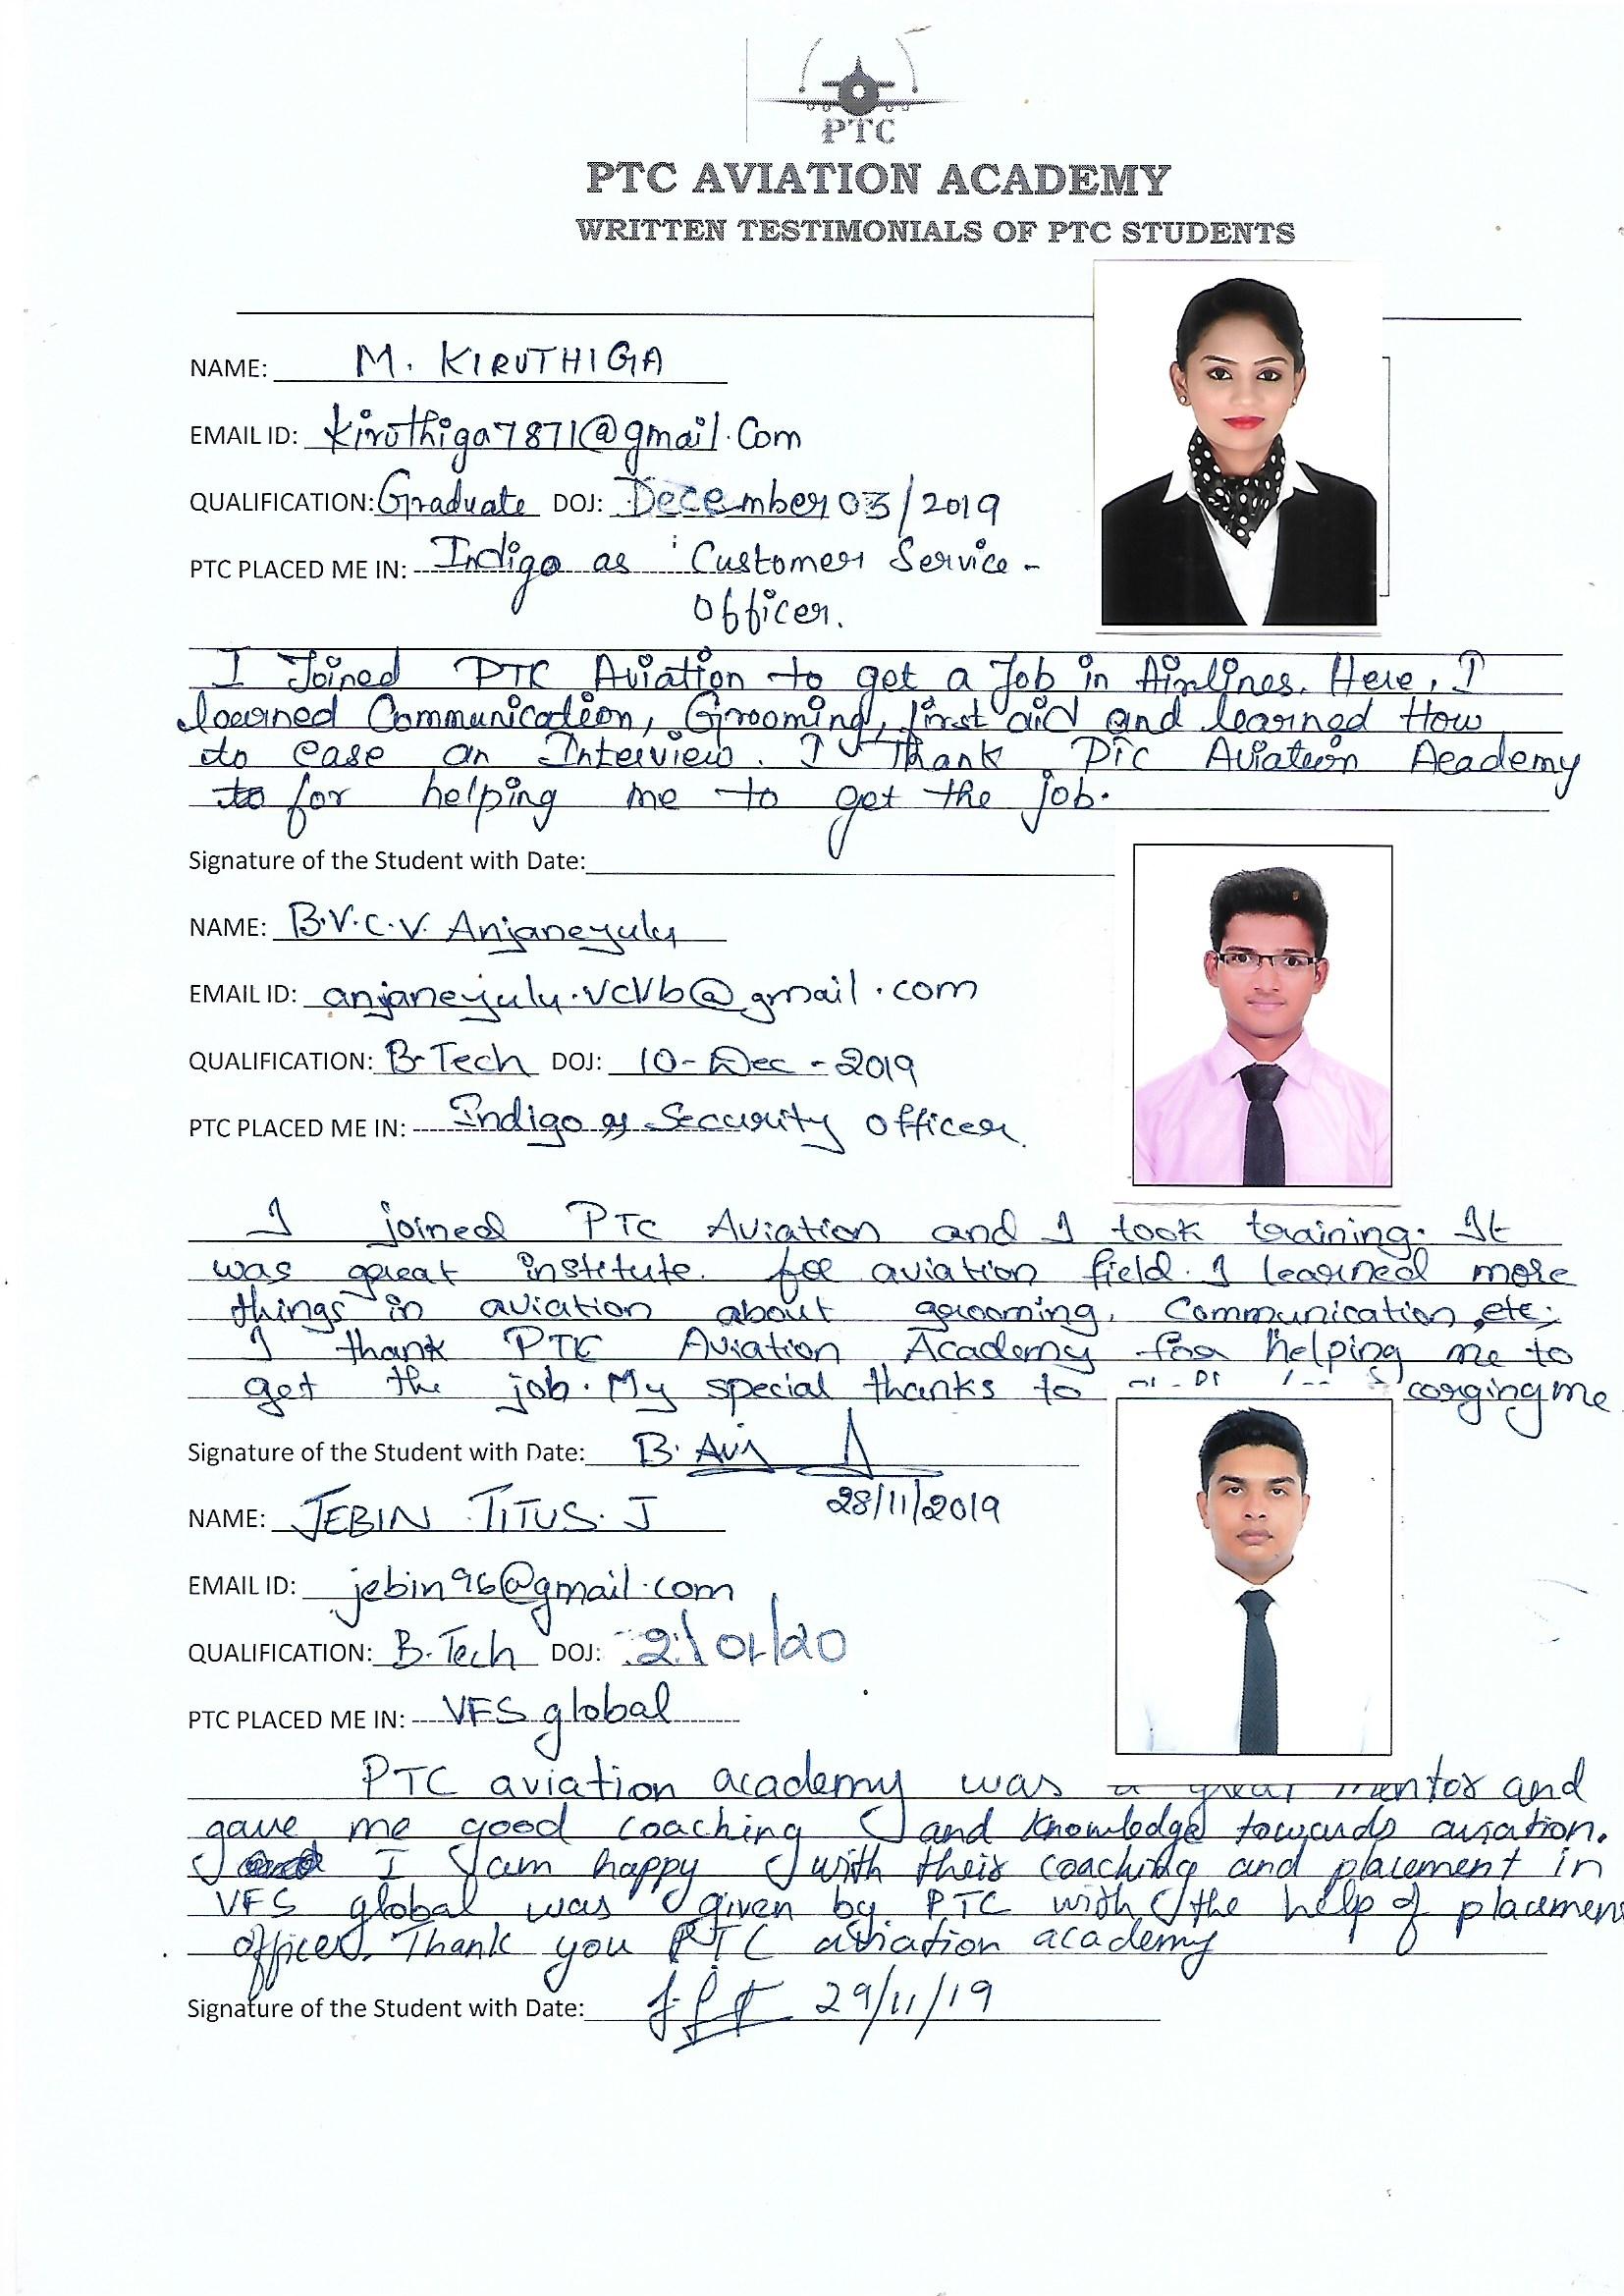 PTC
PTC AVIATION ACADEMY
WRITTEN TESTIMONIALS OF PTC STUDENTS
NAME: M. KIRUTHIGA
EMAIL ID: kiruthiga7871@gmail.Com
QUALIFICATION: Graduate DOJ: December 03/2019
PTC PLACED ME IN: Indigo as Customer Service -
Officer.
I Joined PTC Aviation to get a Job in Airlines. Here, I
learned Communication, Grooming, first aid and learned How
to ease an Interview. I Thank PTC Aviation Academy
to for helping me to get the job.
Signature of the Student with Date:
NAME: B.V.C.V. Anjaneyulu
EMAIL ID: anjaneyulu.vcvb@gmail.com
QUALIFICATION: B-Tech DOJ: 10-Dec-2019
PTC PLACED ME IN: Indigo as Security Officer.
I joined PTC Aviation and I took training. It
was great institute. for aviation field. I learned more
things in aviation about grooming, Communication, etc;
I thank PTC Aviation Academy for helping me to
get the job. My special thanks to corging me
Signature of the Student with Date: B.
28/11/2019
NAME: JEBIN TITUS. J
EMAIL ID: jebin96@gmail.com
QUALIFICATION: B.Tech DOJ:
PTC PLACED ME IN: VFS global
PTC aviation academy was a great mentor and
gave me good coaching and knowledge towards aviation.
I am happy with their coaching and placement in
VFS global was given by PTC with the help of placement
officer. Thank you PTC aviation academy
Signature of the Student with Date: 29/11/19